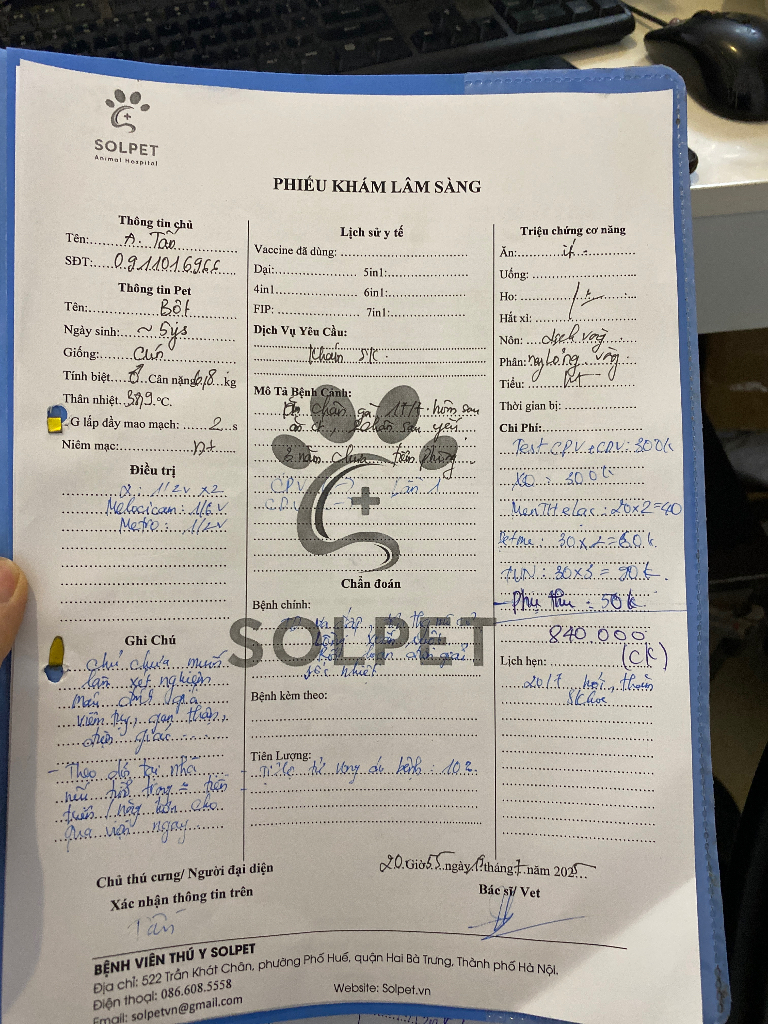 SOLPET
Animal Hospital
PHIẾU KHÁM LÂM SÀNG
Thông tin chủ
Tên: A. Tân
SĐT: 0911016966
Thông tin Pet
Tên: Bột
Ngày sinh: ~ 5 ys
Giống: Cún
Tính biệt Cân nặng 6,8 kg
Thân nhiệt 38,9 °C.
G lấp đầy mao mạch: 2 s
Niêm mạc: nt
Điều trị
α: 1/2v x2
Melocican: 1/6v
Metro: 1/2v
Ghi Chú
chủ chưa muốn
làm xét nghiệm
máu
viêm tụy, gan thận,
- Theo dõi tại nhà
nếu
nặng hơn cho
qua viện ngay
Lịch sử y tế
Vaccine đã dùng:
Dại: 5in1:
4in1 6in1:
FIP: 7in1:
Dịch Vụ Yêu Cầu:
Khám SK.
Mô Tả Bệnh Cảnh:
Ăn chân gà 17/7. hôm sau
2 chân sau yếu.
3 năm chưa tiêm phòng
CPV Lần 1
CDV
Chẩn đoán
Bệnh chính:
sốc nhiệt
Bệnh kèm theo:
Tiên Lượng:
Tỉ lệ tử vong do bệnh: 10%
Triệu chứng cơ năng
Ăn: ít
Uống:
Ho:
Hắt xì:
Nôn: dịch vàng
Phân: lỏng vàng
Tiểu: nt
Thời gian bị:
Chi Phí:
Test CPV + CDV: 300k
XQ: 300k
MenTHelac: 20x2=40
Petme: 30x2=60k
30x3=90k
- Phụ thu: 50k
840 000
(CK)
Lịch hẹn:
20/7 hỏi thăm
SKhoẻ
20 Giờ 55 ngày 19 tháng 7 năm 2025
Chủ thú cưng/ Người đại diện
Xác nhận thông tin trên
Tân
Bác sĩ/ Vet
BỆNH VIÊN THÚ Y SOLPET
Địa chỉ: 522 Trần Khát Chân, phường Phố Huế, quận Hai Bà Trưng, Thành phố Hà Nội.
Điện thoại: 086.608.5558
Website: Solpet.vn
Email: solpetvn@gmail.com
SOLPET